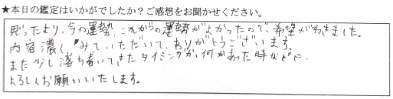 ★本日の鑑定はいかがでしたか？ご感想をお聞かせください。
思ったより、今の運勢、これからの運勢がよかったので、希望がわきました。
内容濃く、みていただいて、ありがとうございます。
また少し落ち着いてきたタイミングか、何かあった時などに
よろしくお願いいたします。